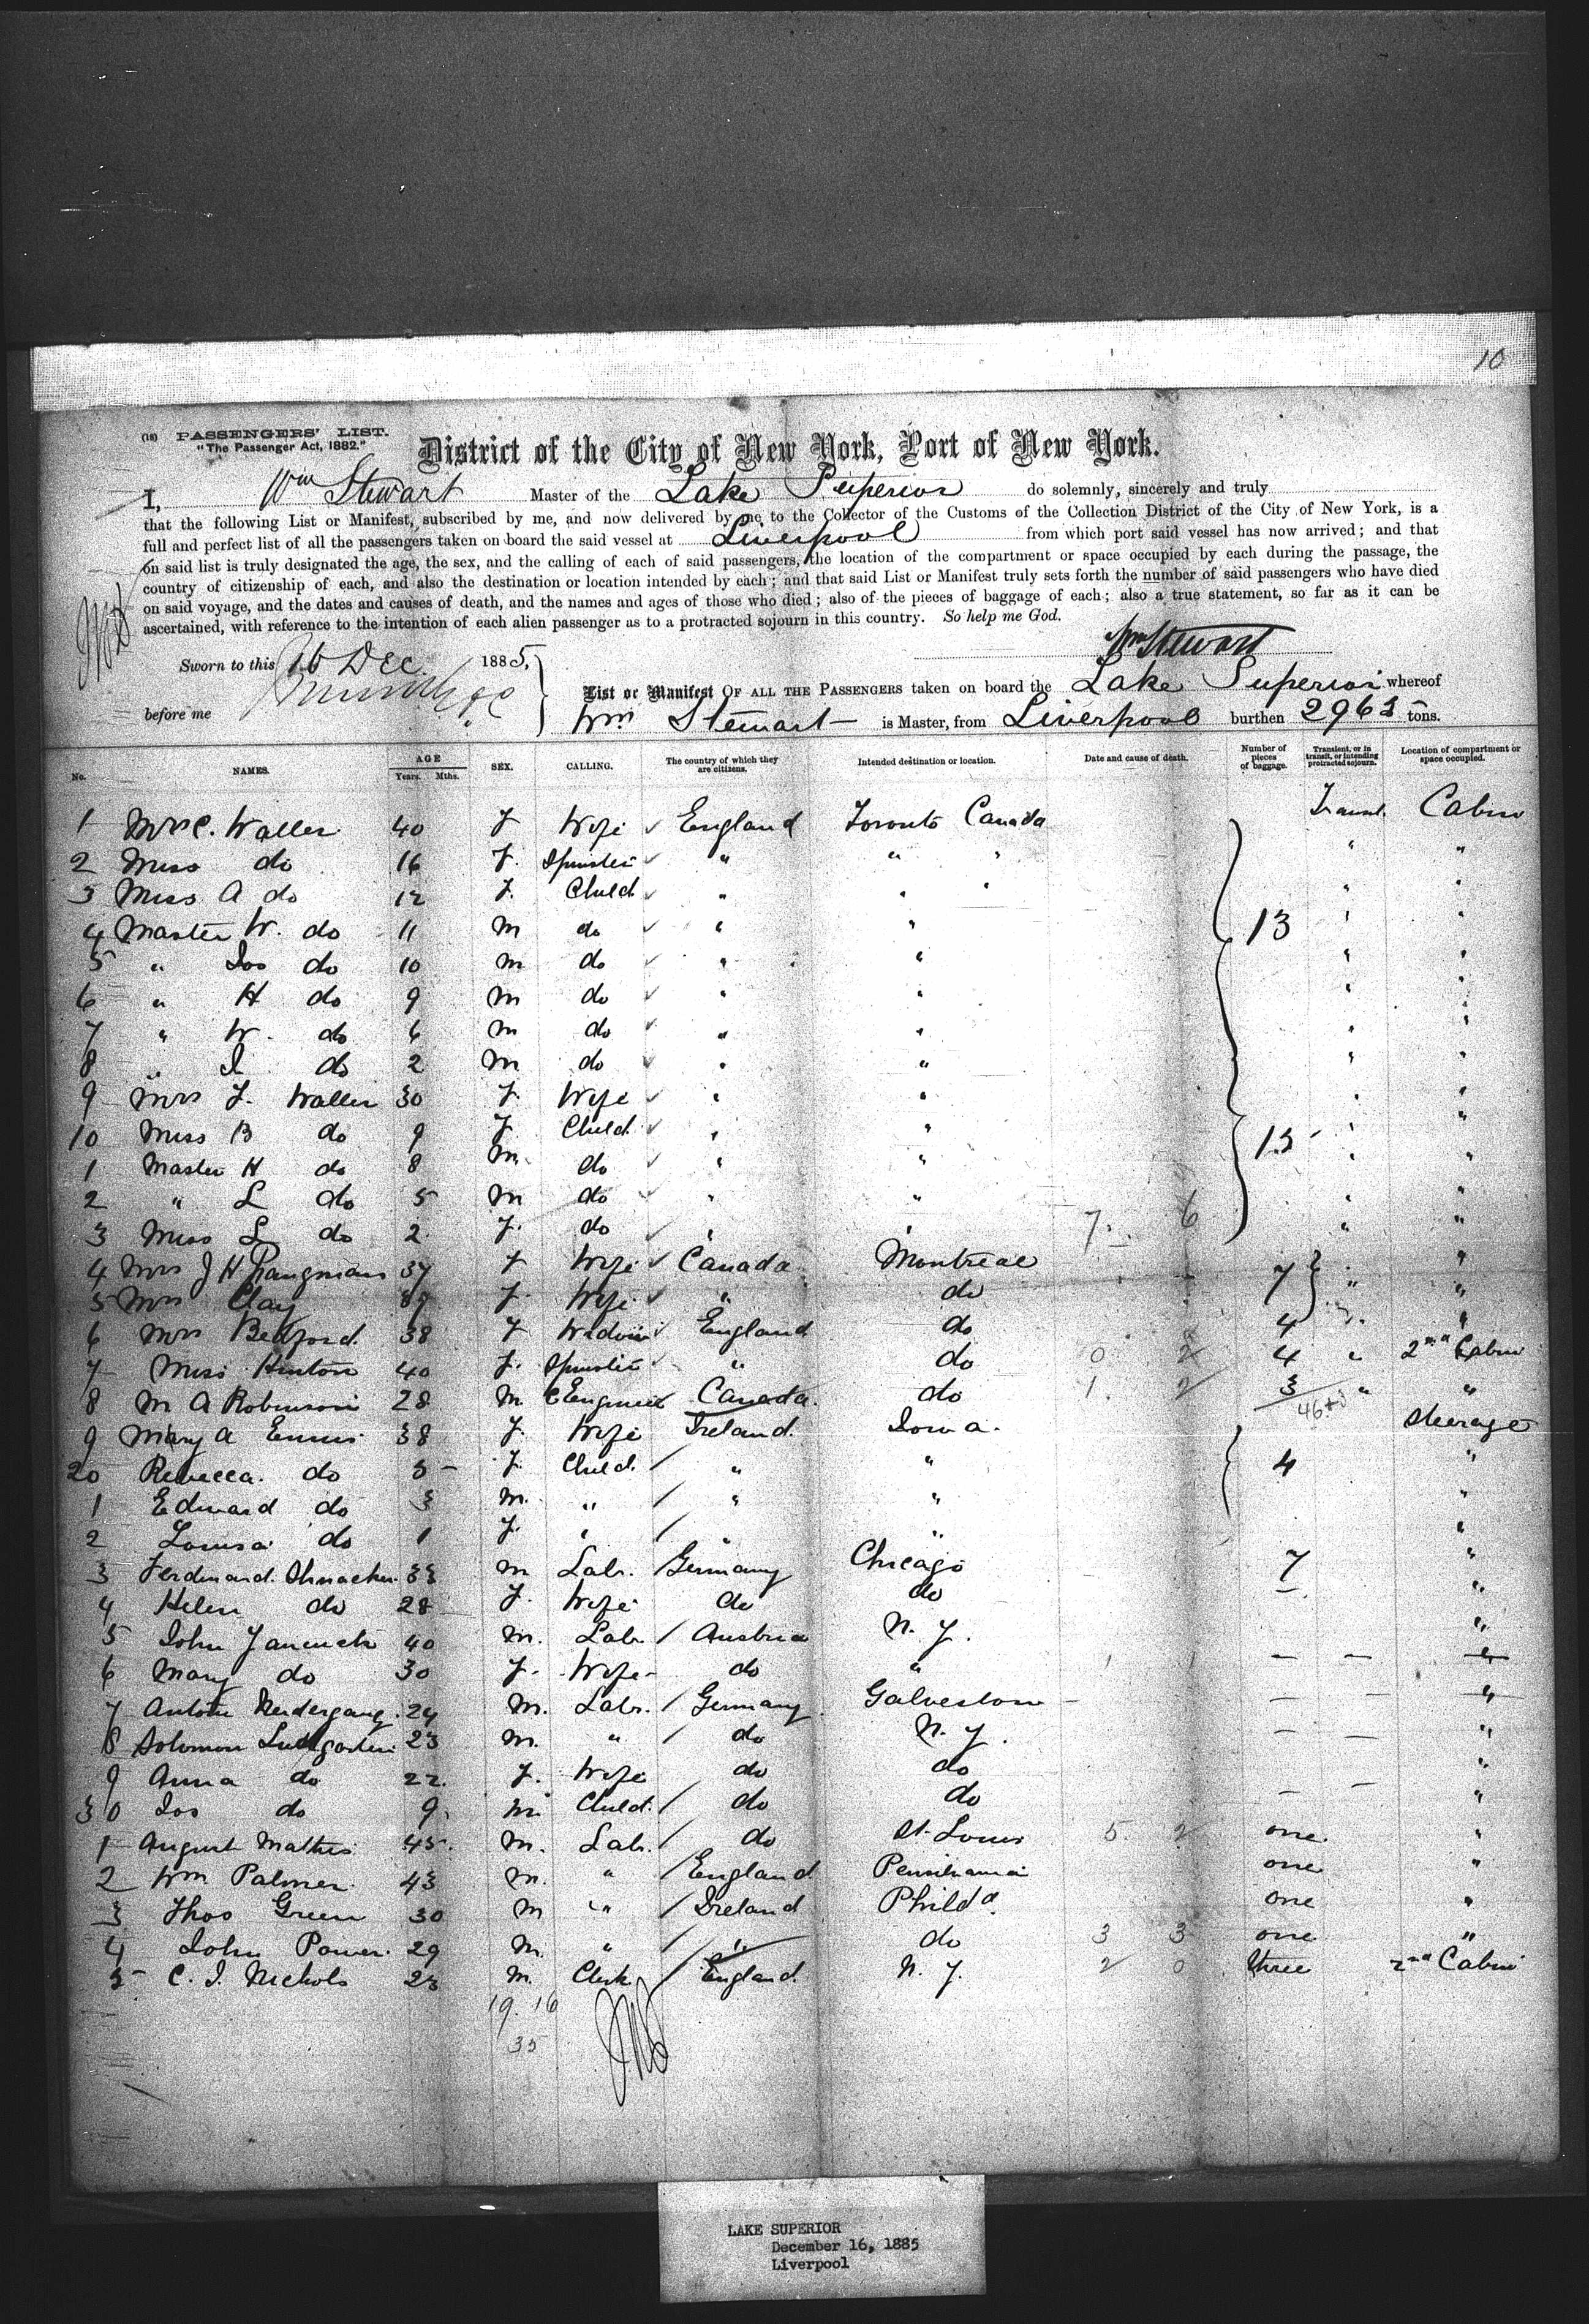 10
(18) PASSENGERS' LIST.
"The Passenger Act, 1882."
District of the City of New York, Port of New York.
I, Wm Stewart Master of the Lake Superior do solemnly, sincerely and truly
that the following List or Manifest, subscribed by me, and now delivered by me to the Collector of the Customs of the Collection District of the City of New York, is a
full and perfect list of all the passengers taken on board the said vessel at Liverpool from which port said vessel has now arrived; and that
on said list is truly designated the age, the sex, and the calling of each of said passengers, the location of the compartment or space occupied by each during the passage, the
country of citizenship of each, and also the destination or location intended by each; and that said List or Manifest truly sets forth the number of said passengers who have died
on said voyage, and the dates and causes of death, and the names and ages of those who died; also of the pieces of baggage of each; also a true statement, so far as it can be
ascertained, with reference to the intention of each alien passenger as to a protracted sojourn in this country. So help me God.
Wm Stewart
Sworn to this 16 Dec 1885,
before me
List or Manifest OF ALL THE PASSENGERS taken on board the Lake Superior whereof
Wm Stewart is Master, from Liverpool burthen 2963 tons.
No. NAMES. AGE Years. Mths. SEX. CALLING. The country of which they are citizens. Intended destination or location. Date and cause of death. Number of pieces of baggage. Transient, or in transit, or intending protracted sojourn. Location of compartment or space occupied.
1 Mrs C. Waller 40 F Wife England Toronto Canada Transt. Cabin
2 Miss do 16 F. Spinster " " " " "
3 Miss A do 12 F. Child " " " " "
4 Master W. do 11 M do " " 13 " "
5 " Jos do 10 M do " " " "
6 " H do 9 M do " " " "
7 " W. do 6 M do " " " "
8 " I do 2 M do " " " "
9 Mrs F. Waller 30 F. Wife " " " "
10 Miss B do 9 F. Child. " " " "
1 Master H do 8 M. do " " 13 " "
2 " L do 5 M do " " " "
3 Miss L do 2 F. do " " 7. 6 " "
4 Mrs J H 37 F Wife Canada Montreal 7 " "
5 Mrs Clay F. Wife " do " "
6 Mrs Bedford. 38 F Widow England do 4 " "
7 Miss Hinton 40 F. Spinster " do 0 2 4 " 2nd Cabin
8 M A Robinson 28 M C Engineer Canada. do 1. 2 3 " "
46
9 Mary A Ennis 38 F. Wife Ireland. Iowa. Steerage
20 Rebecca. do 5 F. Child. " " 4 "
1 Edward do 3 M. " " " "
2 Louisa do 1 F. " " " "
3 Ferdinand. 33 M Labr. Germany Chicago 7 "
4 Helen do 28 F. Wife do do "
5 John 40 M. Labr. Austria N. Y. "
6 Mary do 30 F. Wife do " — — "
7 Anton 24 M. Labr. Germany Galveston — — "
8 Solomon 23 M. " do N. Y. — — "
9 Anna do 22. F. Wife do do "
30 Jos do 9. M. Child. do do — — "
1 August Mathis 45. M. Labr. do St. Louis 5 2 one "
2 Wm Palmer 43 M. " England one "
3 Thos Green 30 M " Ireland Philda. one "
4 John Power 29 M. " " do 3 3 one "
5 C. J. Nichols 23 M. Clerk England N. Y. 2 0 three 2nd Cabin
19. 16
35
LAKE SUPERIOR
December 16, 1885
Liverpool